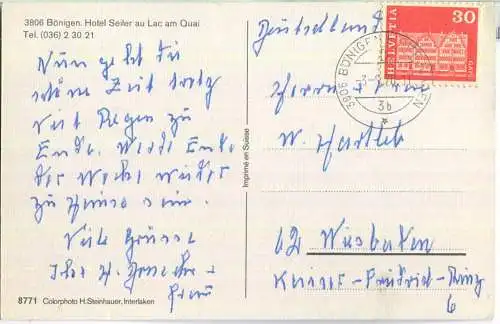 3806 Bönigen. Hotel Seiler au Lac am Quai
Tel. (036) 2 30 21
Nun geht die
schöne Zeit trotz
viel Regen zu
Ende. Werde Ende
der Woche wieder
zu Hause sein.
Viele Grüsse
Ihre H.
Frau
8771 Colorphoto H. Steinhauer, Interlaken
Imprimé en Suisse
Deutschland
HELVETIA 30
3806 BÖNIGEN
3b
Herrn + Frau
W. Hartleb
62 Wiesbaden
Kaiser-Friedrich-Ring
6